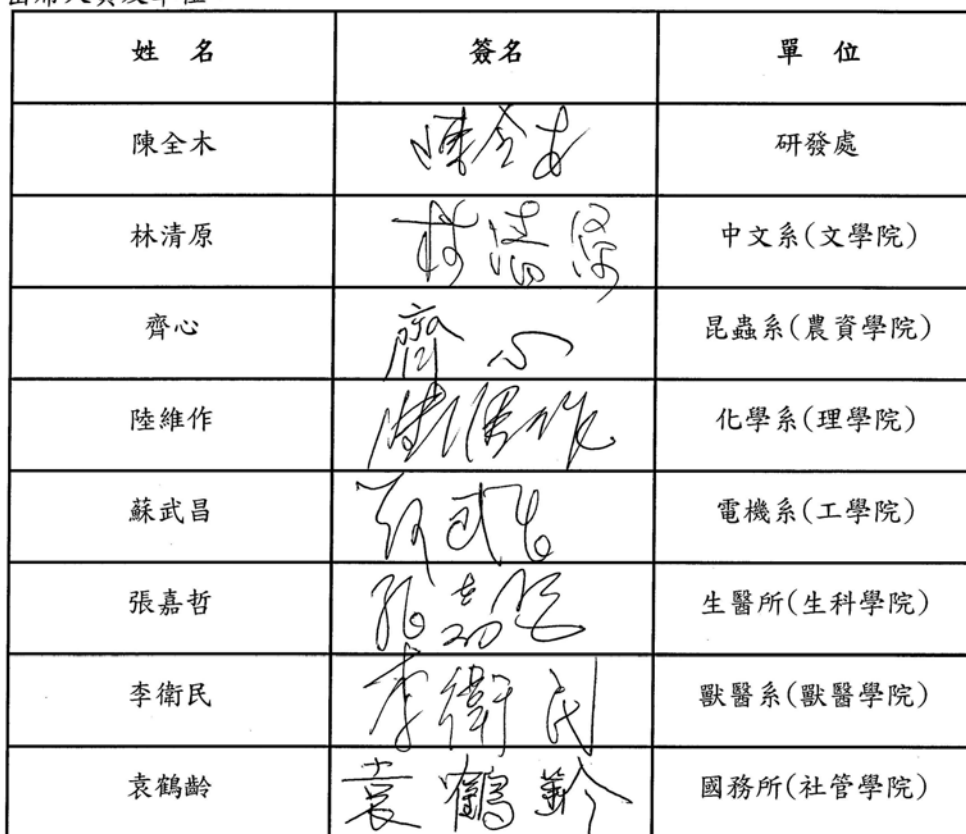 出席人員及單位
姓 名 簽名 單 位
陳全木 陳全木 研發處
林清原 林清原 中文系(文學院)
齊心 齊心 昆蟲系(農資學院)
陸維作 陸維作 化學系(理學院)
蘇武昌 蘇武昌 電機系(工學院)
張嘉哲 張嘉哲 生醫所(生科學院)
李衛民 李衛民 獸醫系(獸醫學院)
袁鶴齡 袁鶴齡 國務所(社管學院)